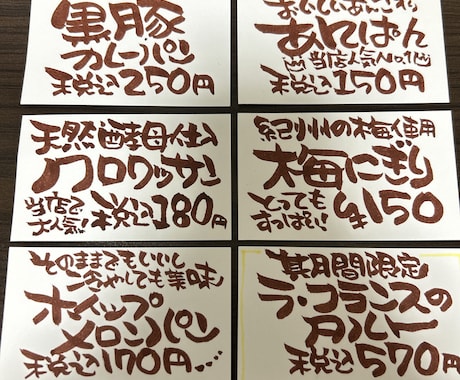 黒豚
カレーパン
税込250円
おいしいあんこ入れ
あんぱん
当店人気No.1
税込150円
天然酵母仕込
クロワッサン
当店で
大人気!
税込180円
紀州の梅使用
梅にぎり
とっても
すっぱい!
¥150
そのままでもいいし
冷やしても美味
ホイップ
メロンパン
税込170円
期間限定
ラ・フランスの
タルト
税込570円